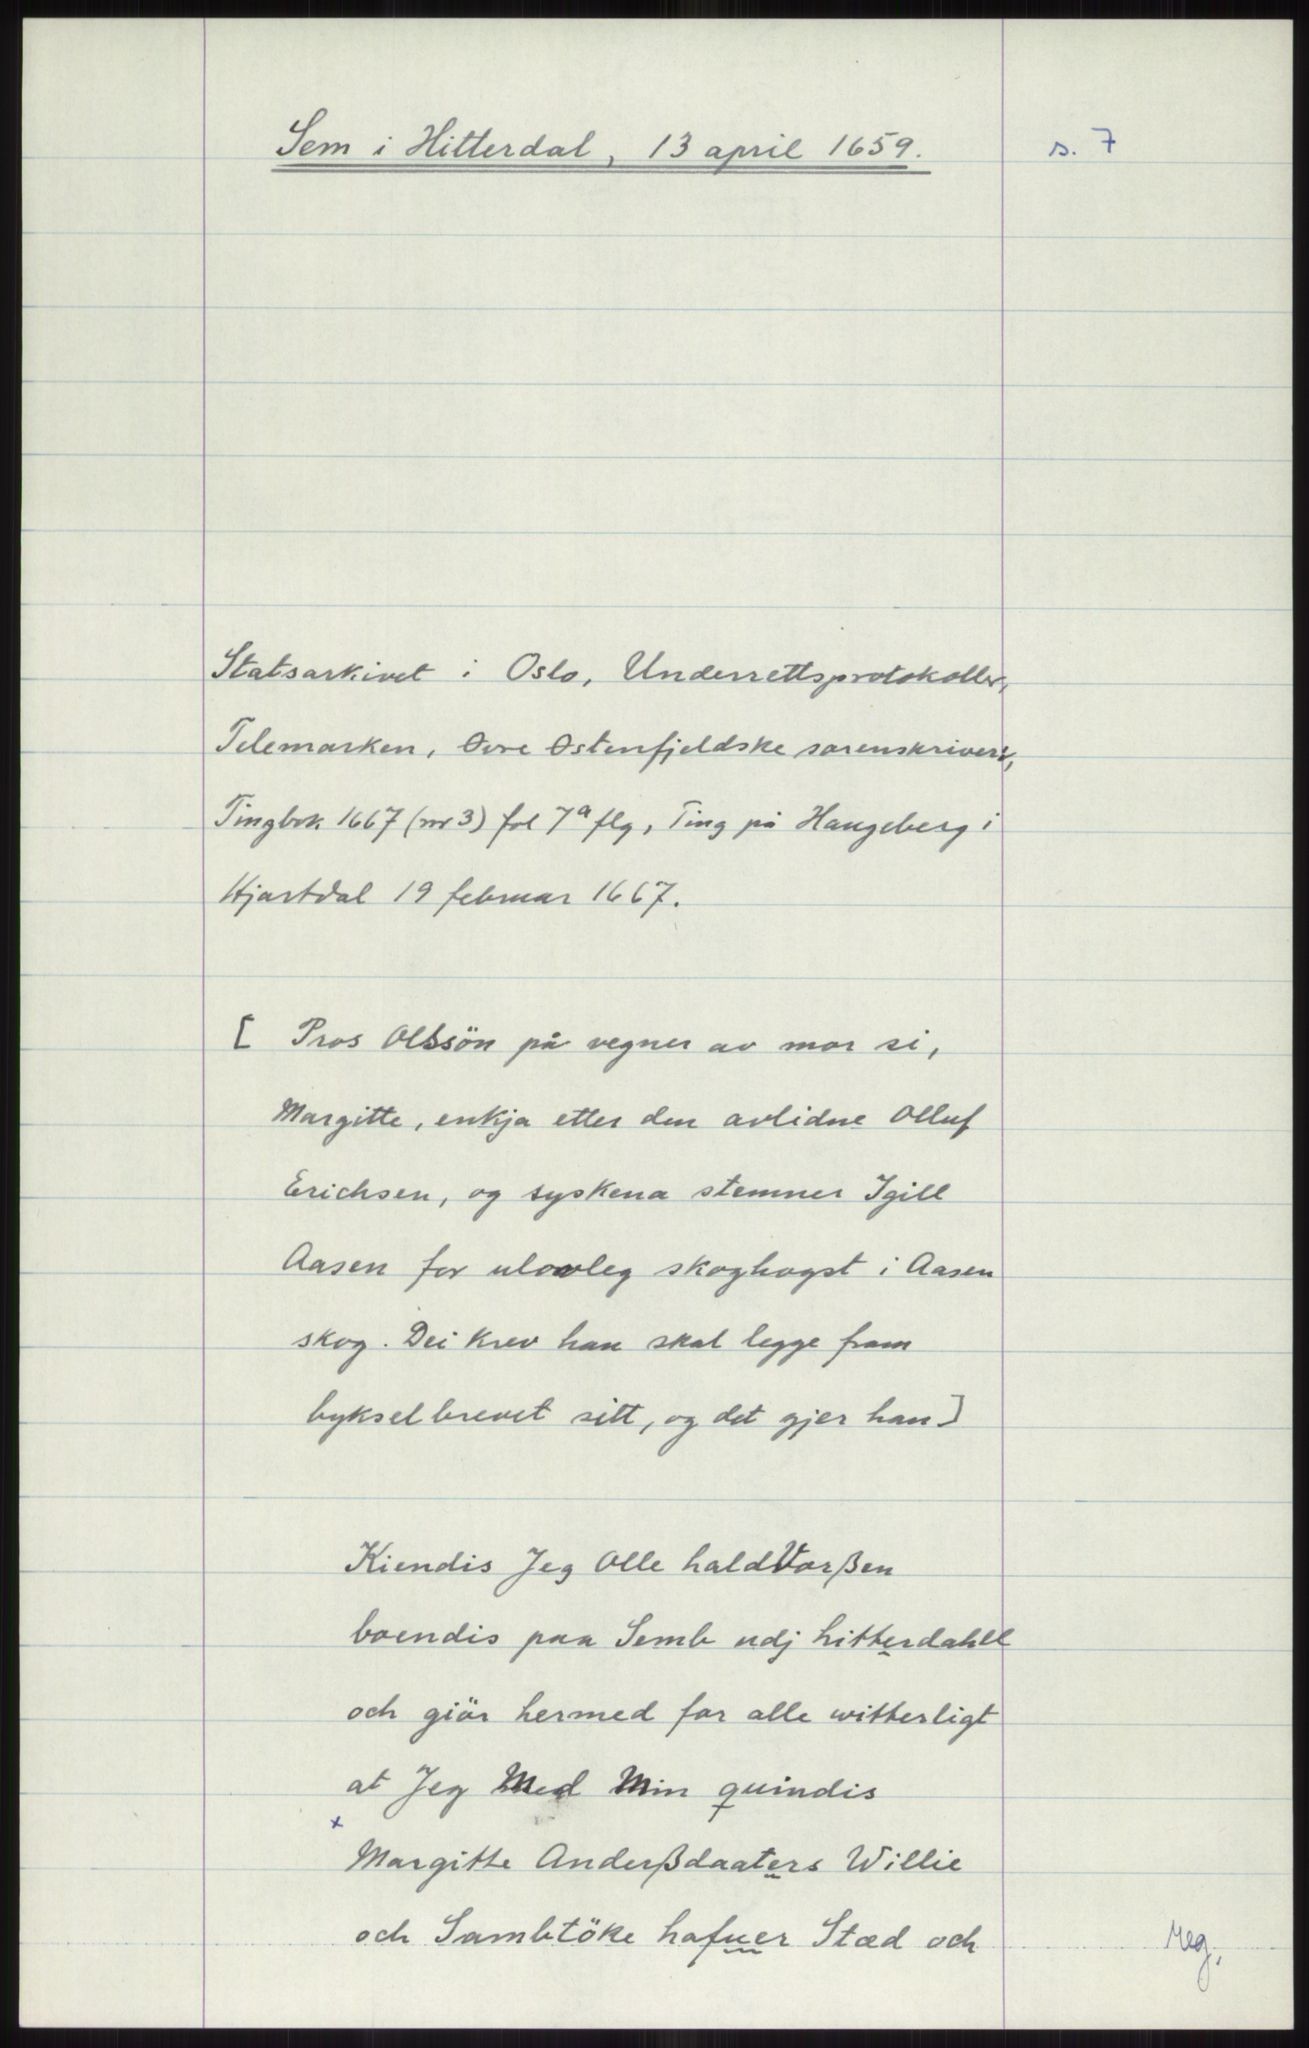 Sem i Hitterdal, 13 april 1659. s. 7
Statsarkivet i Oslo, Underrettsprotokoller,
Telemarken, Øvre Østenfjeldske sorenskriveri,
Tingbok 1667 (nr 3) fol 7a flg, Ting på Haugeberg i
Hjartdal 19 februar 1667.
[ Pros Olssön på vegner av mor si,
Margitte, enkja etter den avlidne Olluf
Erichsen, og syskena stemner Igill
Aasen for ulovleg skoghogst i Aasen
skog. Dei krev han skal legge fram
bykselbrevet sitt, og det gjer han]
Kiendis Jeg Olle haldVorßen
boendis paa Semb udj hitterdahll
och giör hermed for alle witterligt
at Jeg Med Min quindis
x
Margitte Anderßdaaters Willie
och Sambtöke hafuer Stæd och
reg.